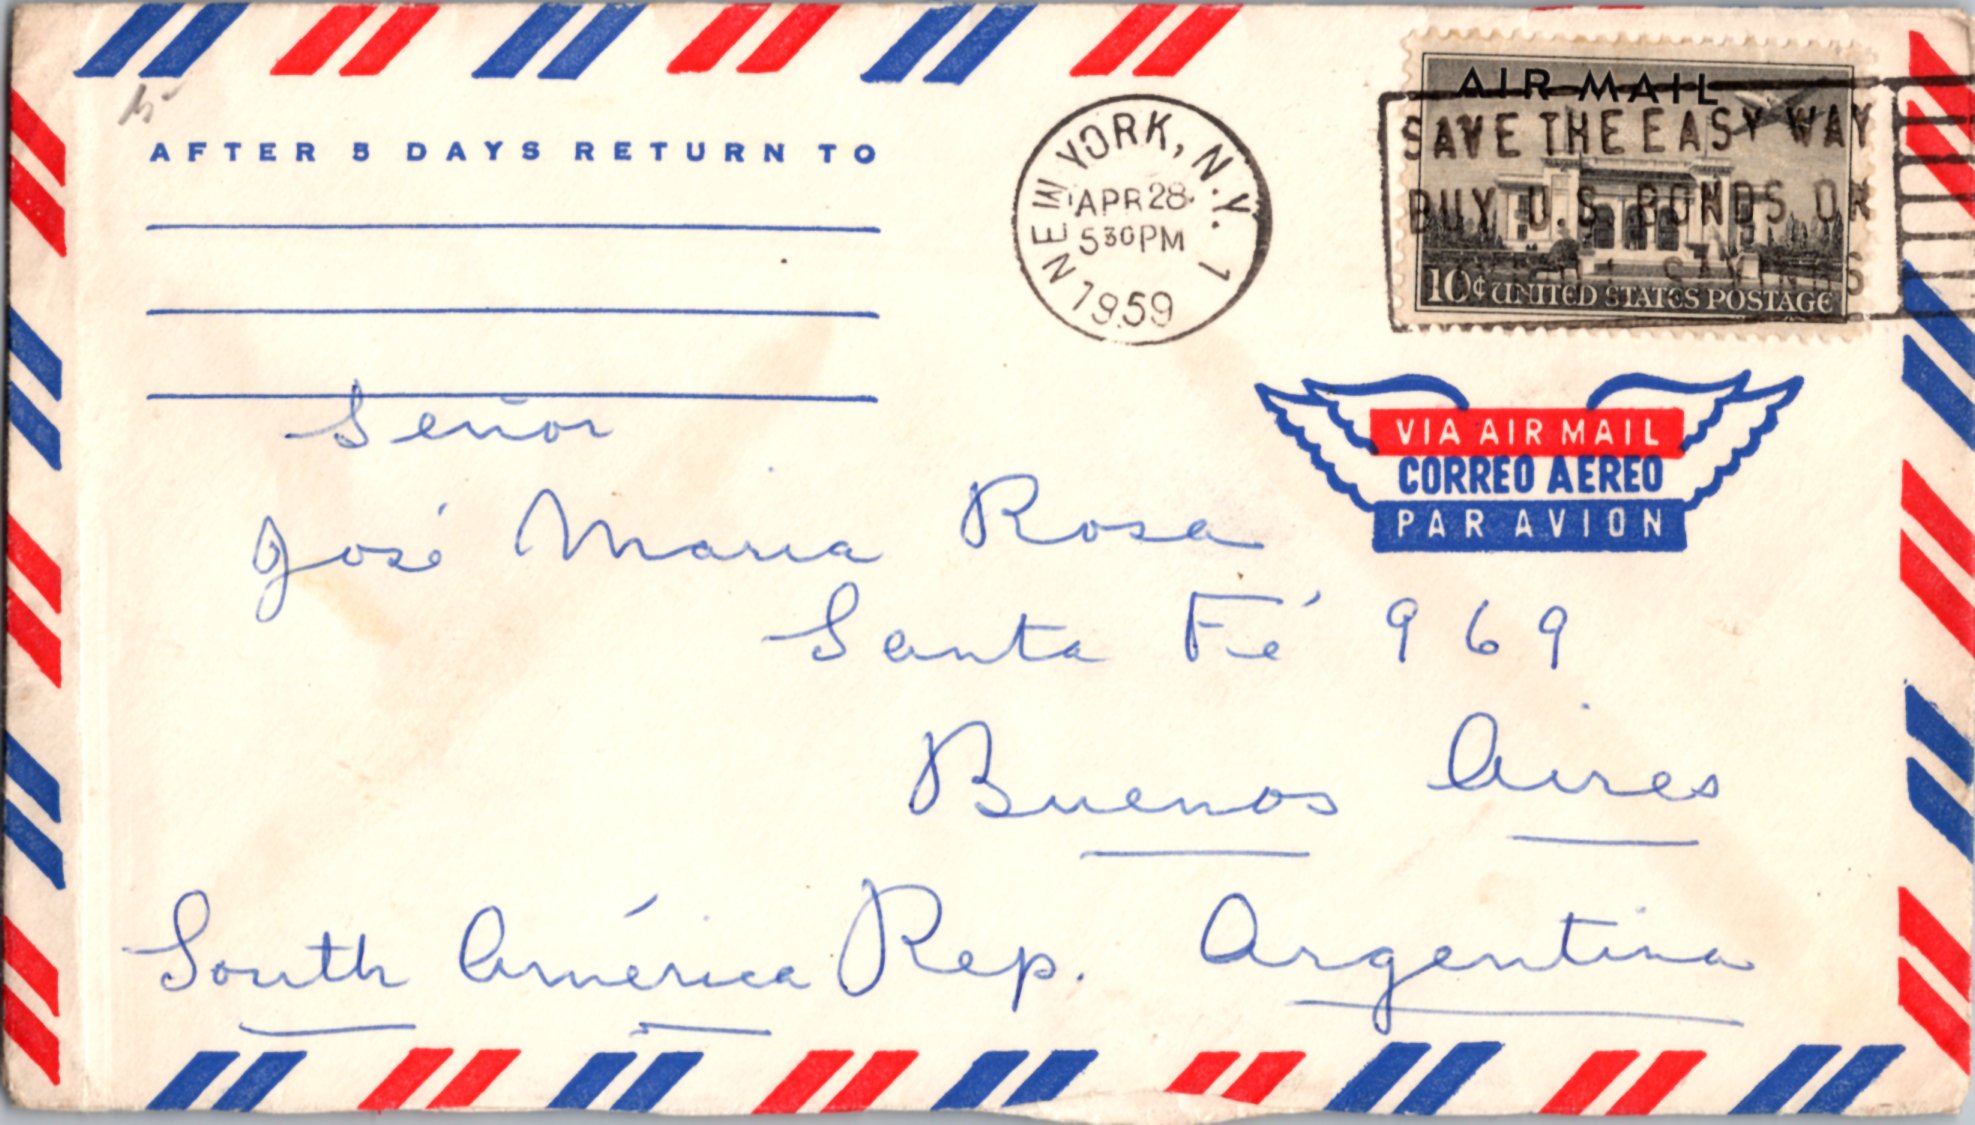 AFTER 5 DAYS RETURN TO
NEW YORK, N.Y. 1
APR 28
530PM
1959
AIR MAIL
SAVE THE EASY WAY
BUY U.S. BONDS OR
SAVINGS
10¢ UNITED STATES POSTAGE
VIA AIR MAIL
CORREO AEREO
PAR AVION
Señor
José Maria Rosa
Santa Fé 969
Buenos Aires
South América Rep. Argentina